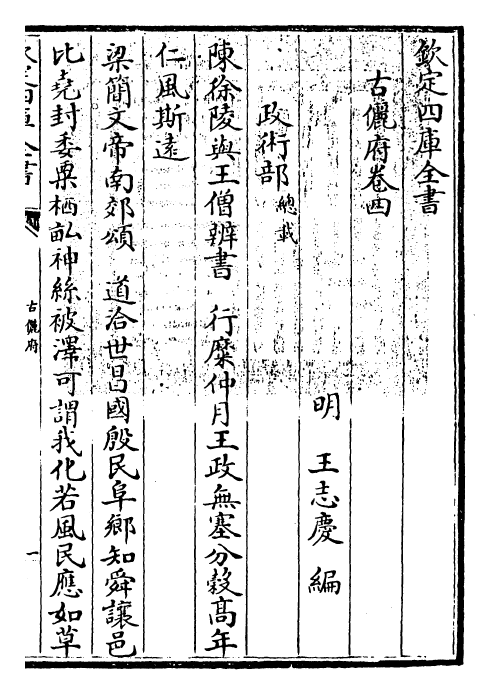 欽定四庫全書
古儷府卷四
明 王志慶 編
政術部 總載
陳徐陵與王僧辨書 行糜仲月王政無塞分穀髙年
仁風斯逺
梁簡文帝南郊頌 道洽世昌國殷民阜鄉知舜讓邑
比堯封委粟栖畆神絲被澤可謂我化若風民應如草
古儷府
一